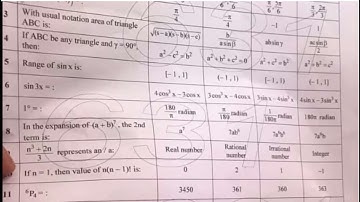 π/4 -π/4 π/6 5π/6 π/3 2π/3
3 With usual notation area of triangle ABC is: √(s-a)(s-b)(s-c) b/(a sinβ) -1 1
4 If ABC be any triangle and γ = 90°, then: a² - c² = b² a² + b² + c² = 0 ab sinγ ac sinβ/2
a² + b² = c² a² - b² = c²
5 Range of sin x is: [-1, 1] (-1, 1) [-1, 1) (-1, 1]
6 sin 3x = : 4 cos³ x - 3 cos x 3 cos x - 4 cos³ x 3 sin x - 4 sin³ x 4 sin x - 3 sin³ x
7 1° = : 180/π radian π/180 radian 180π radian
8 In the expansion of (a + b)⁷, the 2nd term is: a⁷ 7ab⁶ 7a⁶b 7a⁶b⁶
9 represent an / a : Real number Rational number Irrational number Integer
If n = 1, then value of n(n - 1)! is: 0 2 1 -1
11 ⁶P₄ = : 3450 361 360 363